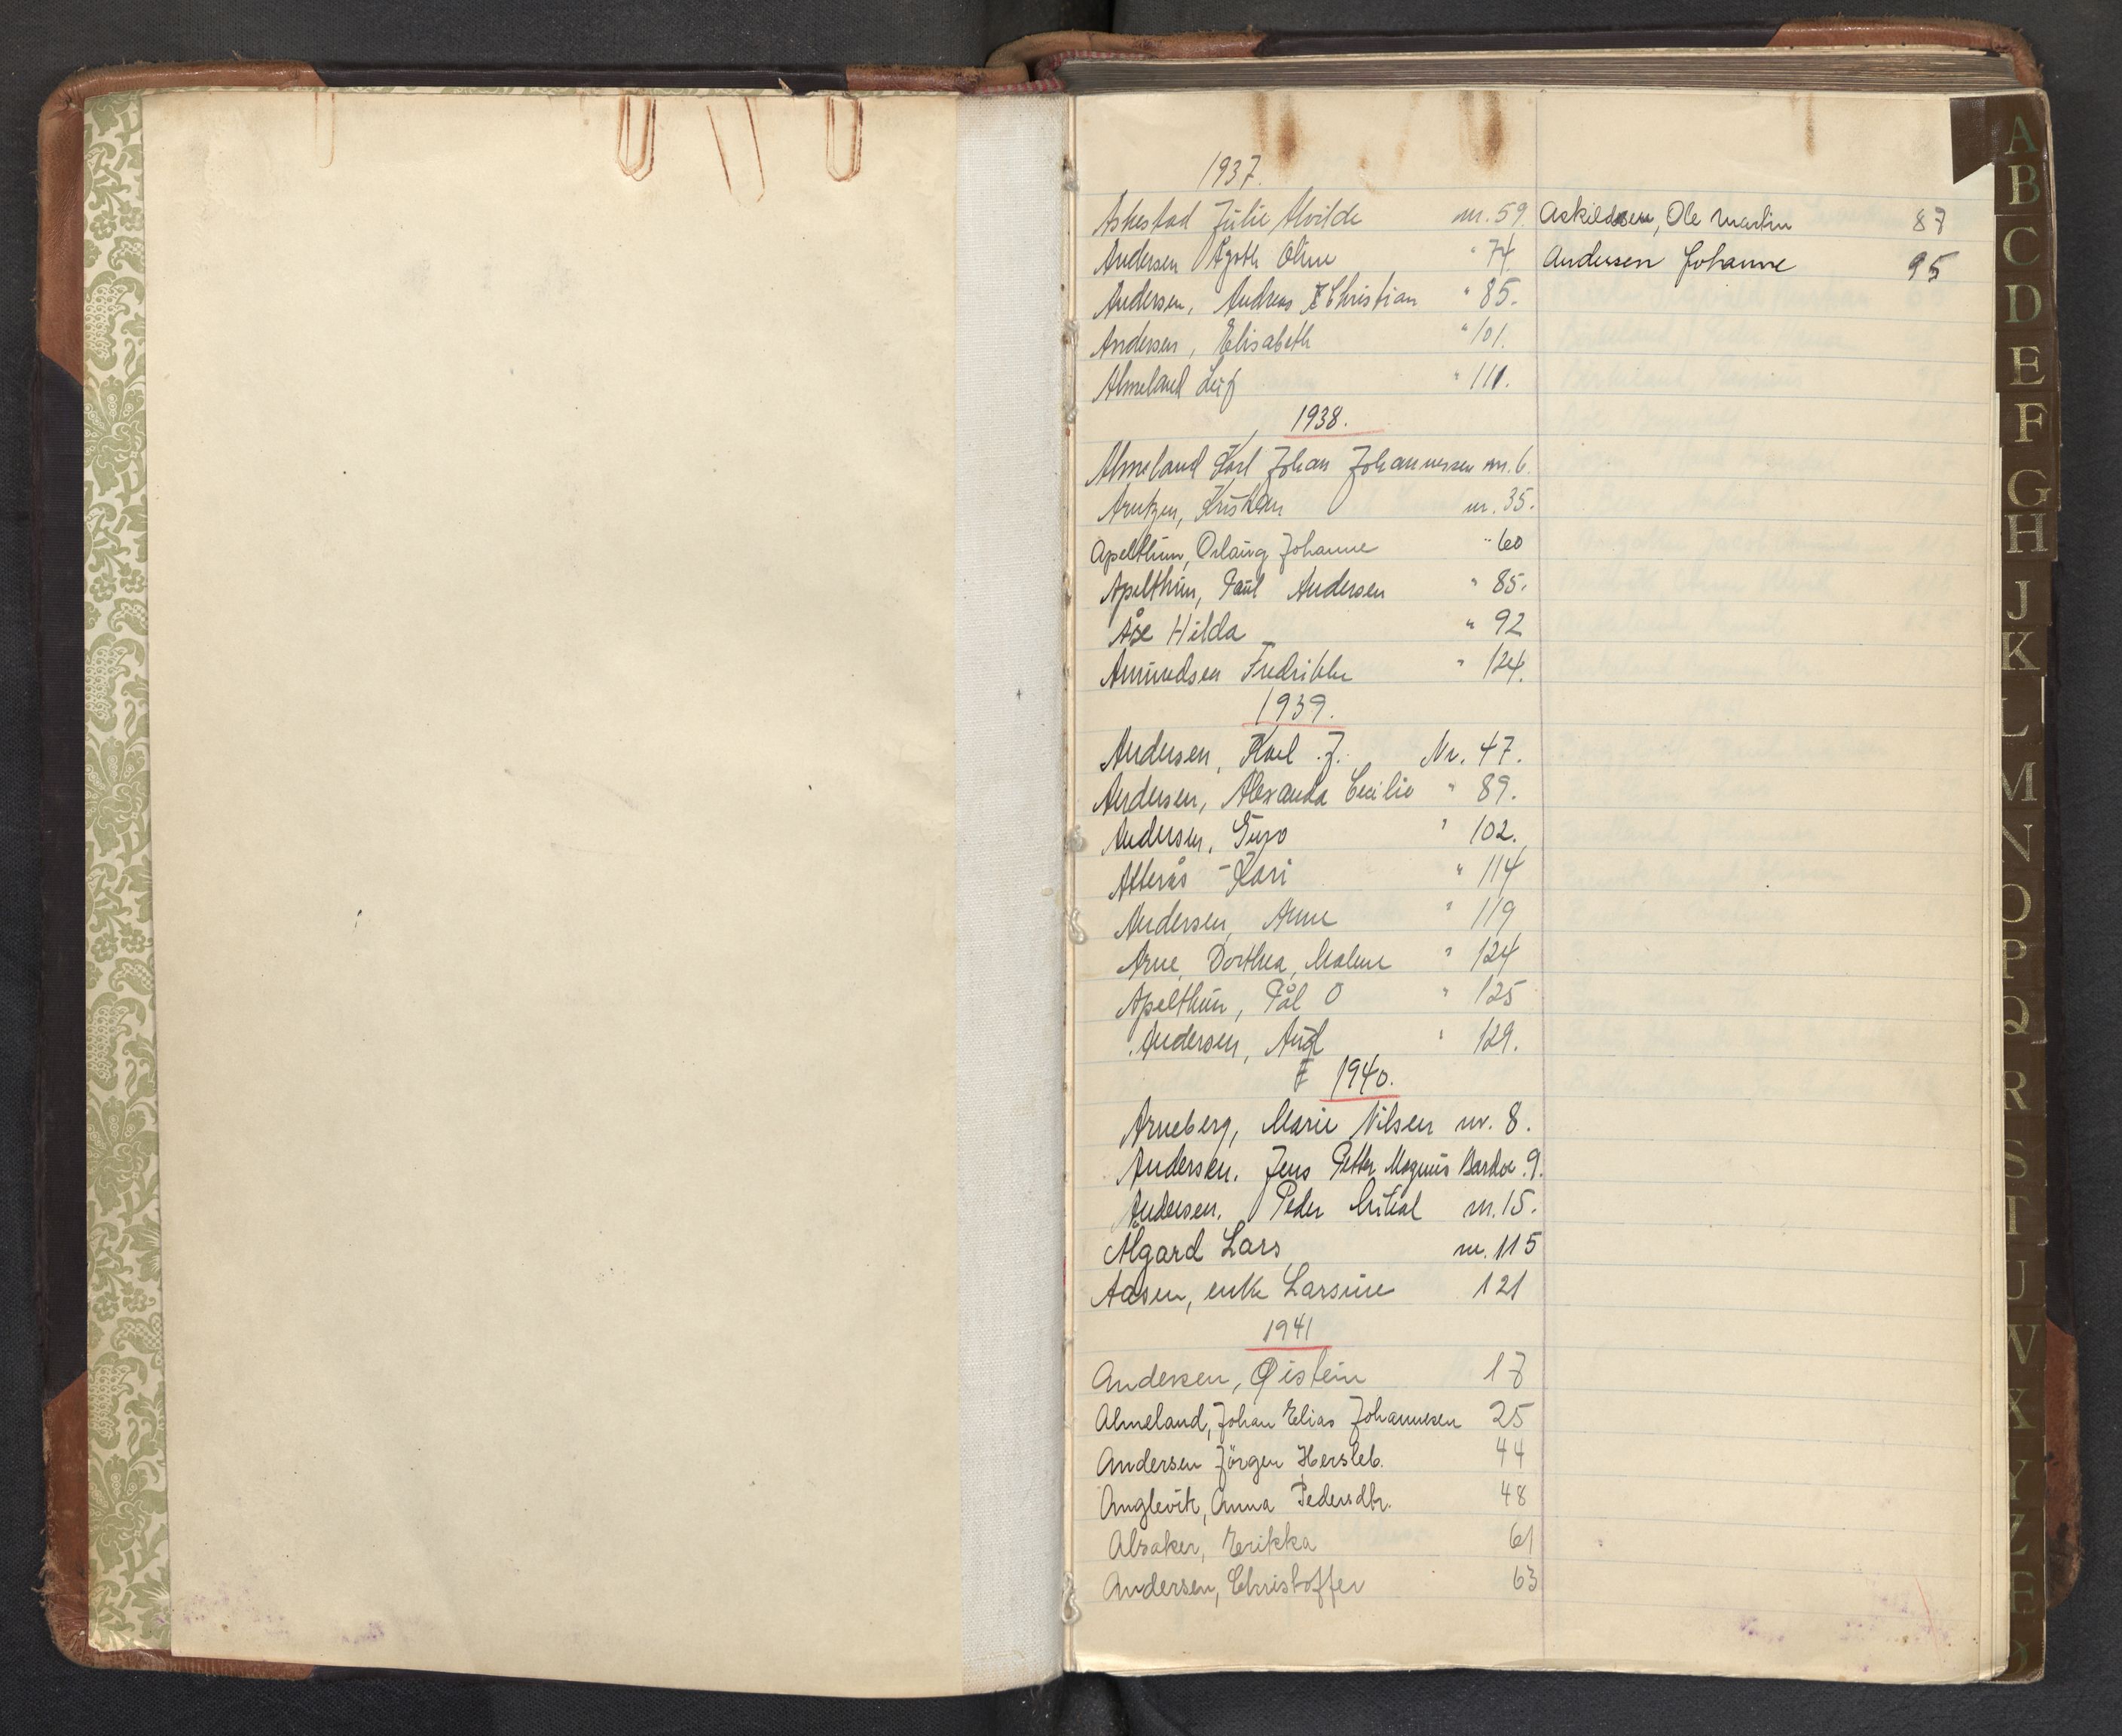 1937.
Askestad Julie Alvilde nr. 59.
Andersen Agoth Oline " 74.
Andersen, Andreas Christian " 85.
Andersen, Elisabeth " 101.
Almeland Leif " 111.
1938.
Almeland Karl Johan Johannessen nr. 6.
Arntzen, Kristian nr. 35.
Apelthun, Oslaug Johanne " 60
Apelthun, Paul Andersen " 85.
Åse Hilda " 92
Amundsen Fredrikke " 124.
1939.
Andersen, Karl J. Nr. 47.
Andersen, Alexanda Cecilie " 89.
Andersen, Guro " 102.
Atterås Kari " 114
Andersen, Anne " 119
Arne, Dorthea, Malene " 124
Apelthun, Pål O " 125
Andersen, Aud " 129.
1940.
Arneberg, Marie Nilsen nr. 8.
Andersen. Jens Petter Magnus 9.
Andersen. Peder Mikal nr. 15.
Ålgard Lars nr. 115
Aasen, enke Larsine 121
1941
Andersen, Øistein 17
Almeland, Johan Elias Johannesen 25
Andersen Jörgen Hersleb. 44
Anglevik, Anna Pedersdtr. 48
Alsaker, Erikka 61
Andersen, Christoffer 63
Askildsen, Ole Martin 87
Andersen Johanne 95
A
B
C
D
E
F
G
H
J
K
L
M
N
O
P
Q
R
S
T
U
V
X
Y
Z
Æ
Ø